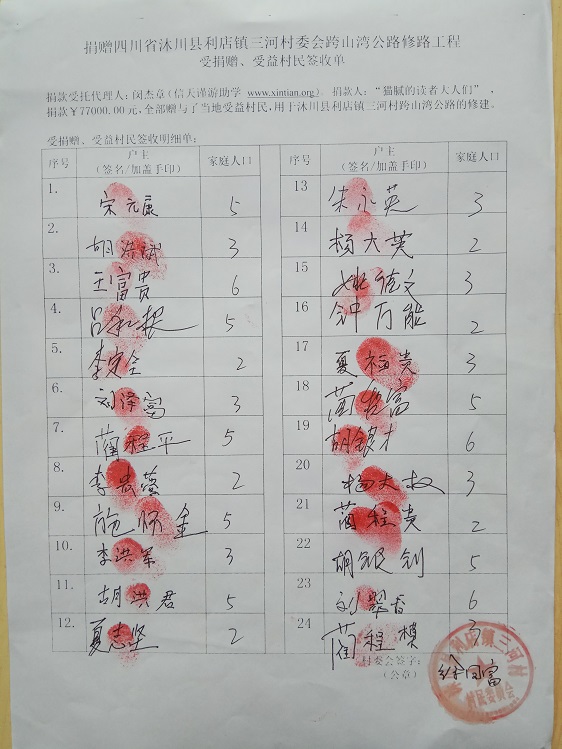 捐赠四川省沐川县利店镇三河村委会跨山湾公路修路工程
受捐赠、受益村民签收单
捐款受托代理人:闵杰章(信天译游助学 www.xintian.org)。捐款人:“猫腻的读者大人们”,
捐款￥77000.00元,全部赠与了当地受益村民,用于沐川县利店镇三河村跨山湾公路的修建。
受捐赠、受益村民签收明细单:
序号 户主(签名/加盖手印) 家庭人口
1. 宋元康 5
2. 胡洪斌 3
3. 王富贵 6
4. 吕和根 5
5. 李安全 2
6. 刘泽富 3
7. 蔺程平 5
8. 李贵蓉 2
9. 施怀金 5
10. 李洪军 3
11. 胡洪君 5
12. 夏志坚 2
序号 户主(签名/加盖手印) 家庭人口
13 朱小英 3
14 杨大英 2
15 姚德文 3
16 钟万能 2
17 夏福贵 3
18 蔺名富 5
19 胡银才 6
20 杨大权 3
21 蔺程贵 2
22 胡银剑 5
23 刘翠香 6
24 蔺程模 3
村委会签字:
(公章)
徐国富
利店镇三河村
村民委员会